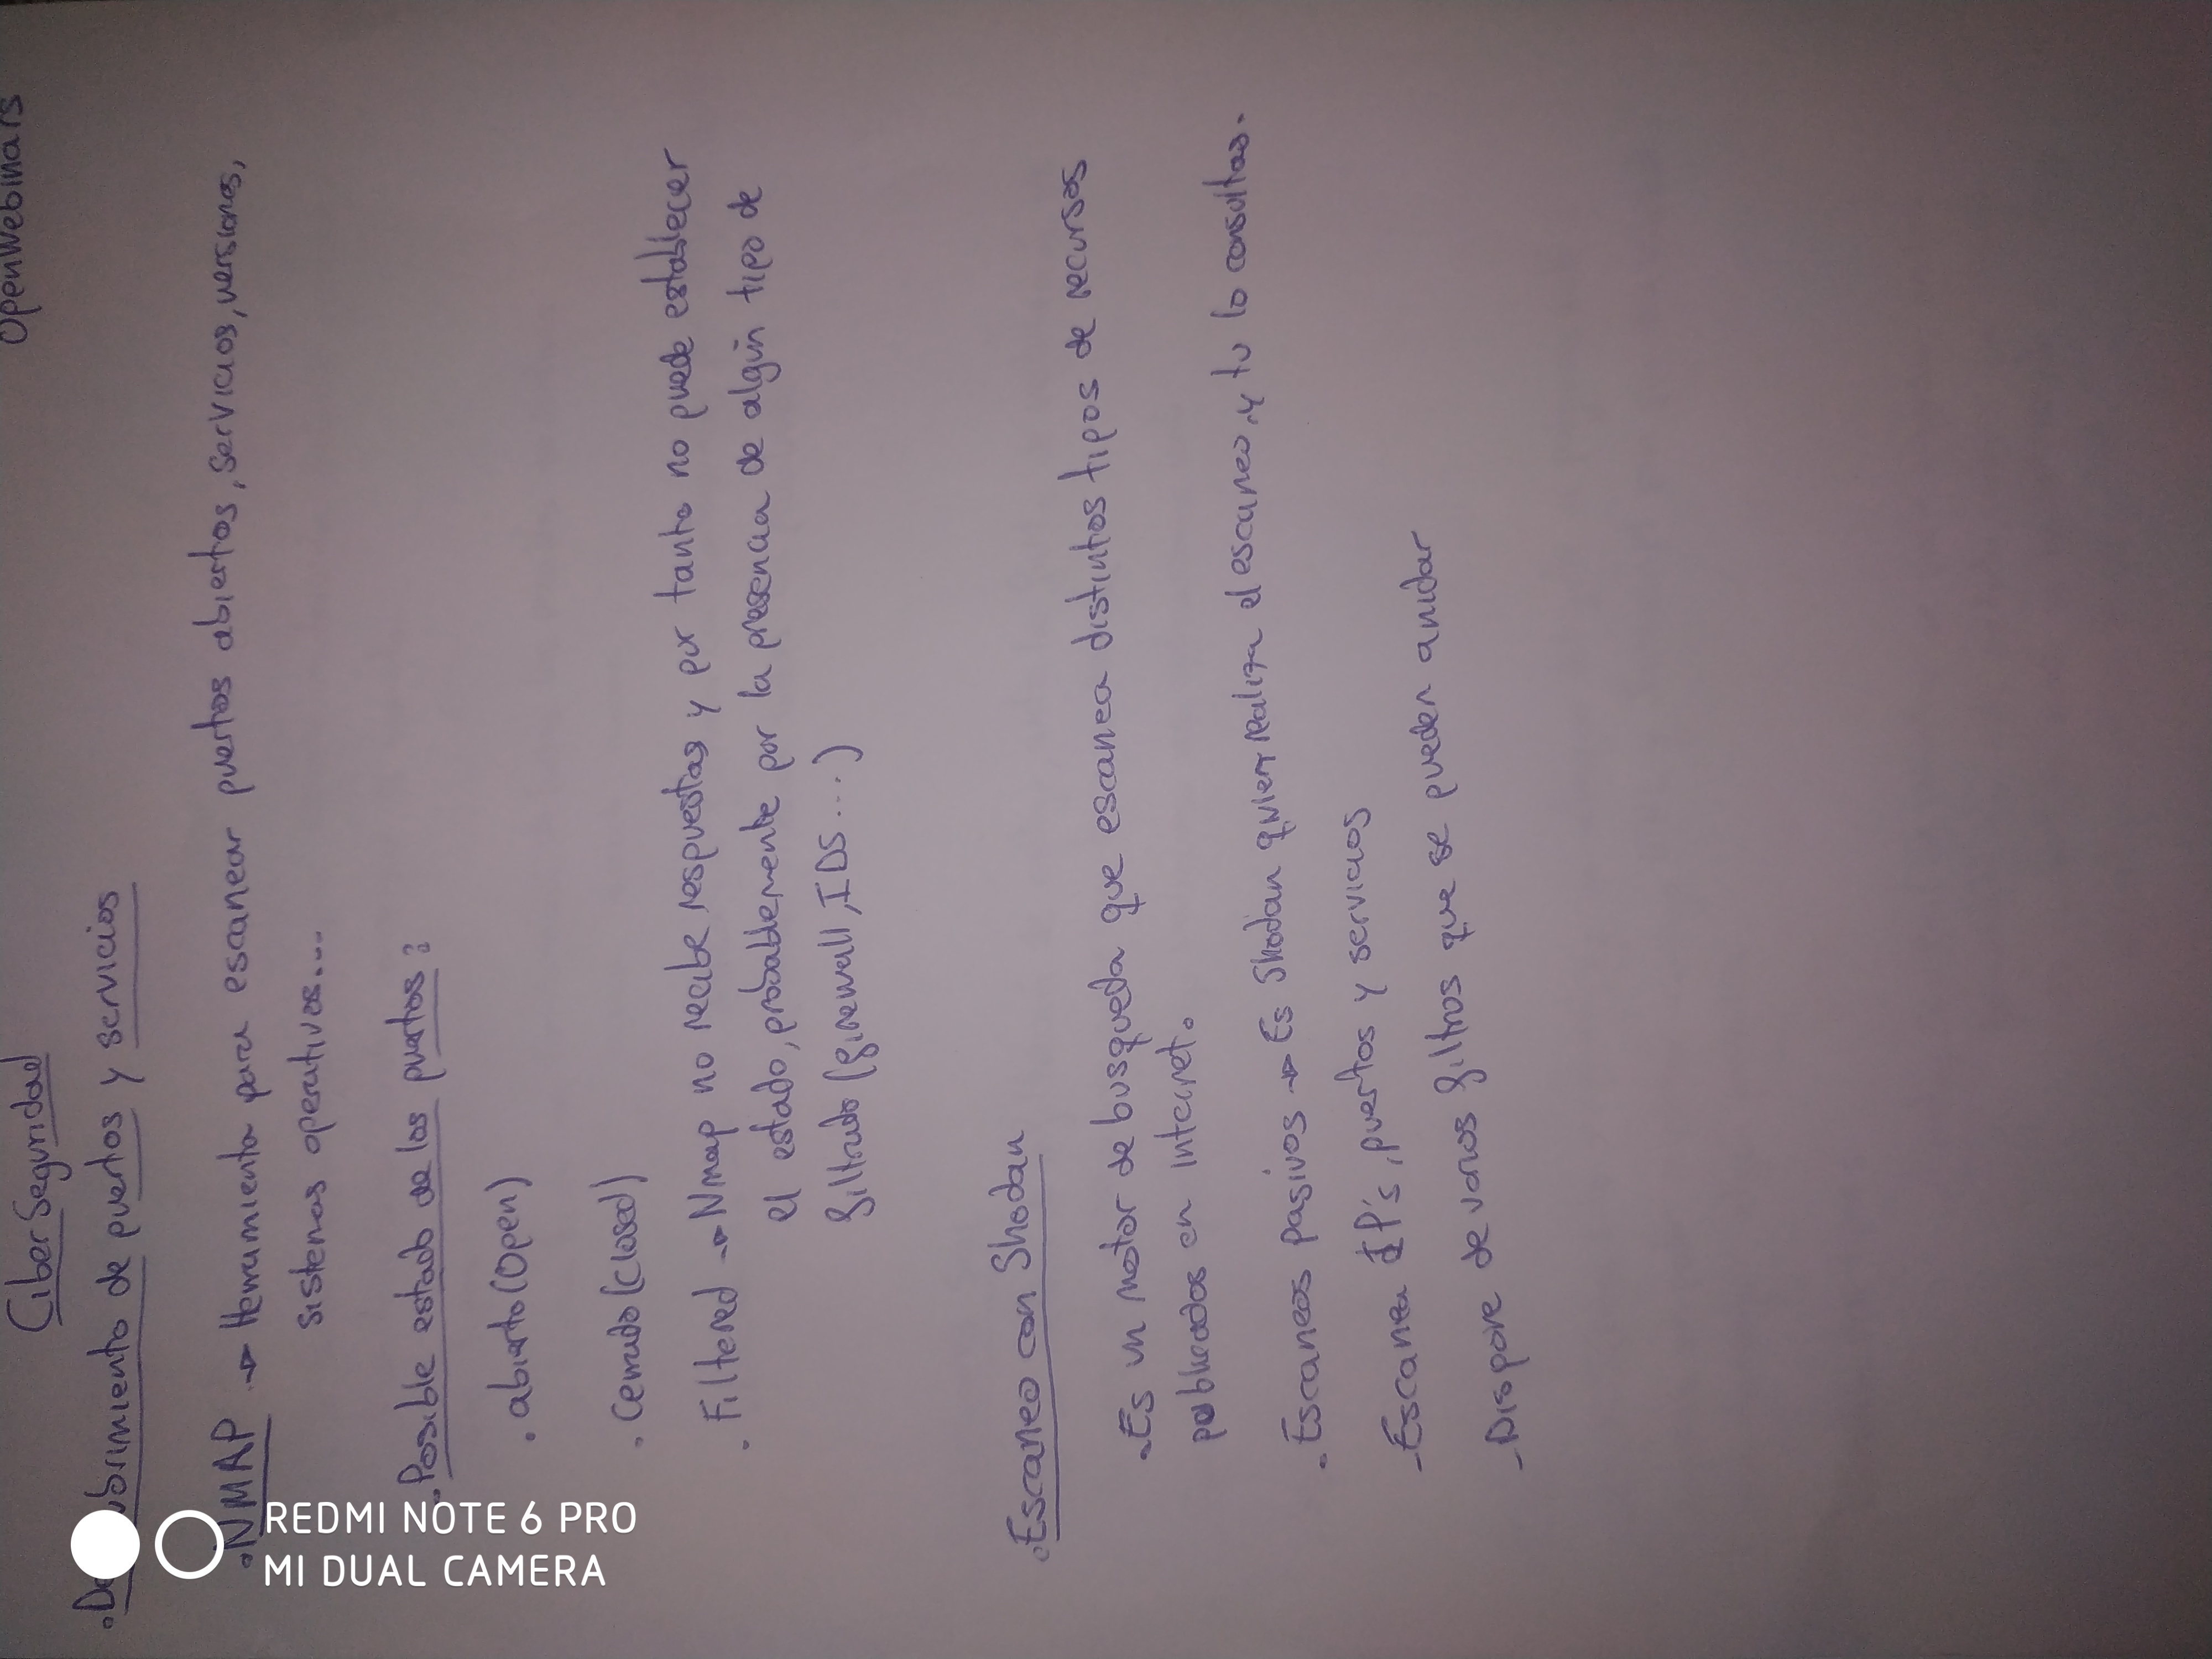 OpenWebinars
CiberSeguridad
. Descubrimiento de puertos y servicios
. NMAP → Herramienta para escanear puertos abiertos, servicios, versiones,
sistemas operativos...
. Posible estado de los puertos:
. abierto (Open)
. Cerrado (Closed)
. Filtered → Nmap no recibe respuestas y por tanto no puede establecer
el estado, probablemente por la presencia de algún tipo de
filtrado (firewall, IDS....)
. Escaneo con Shodan
. Es un motor de busqueda que escanea distintos tipos de recursos
publicados en internet.
. Escaneos pasivos → Es Shodan quien realiza el escaneo, y tu lo consultas.
- Escanea IP's, puertos y servicios
- Dispone de varios filtros que se pueden anidar
REDMI NOTE 6 PRO
MI DUAL CAMERA